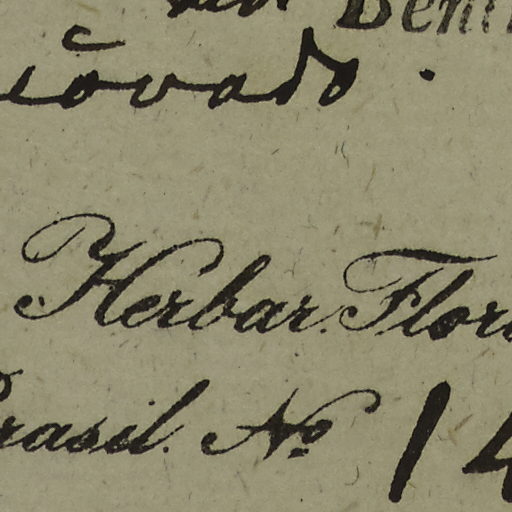 icovado.
Herbar. Flor
rasil. No 14